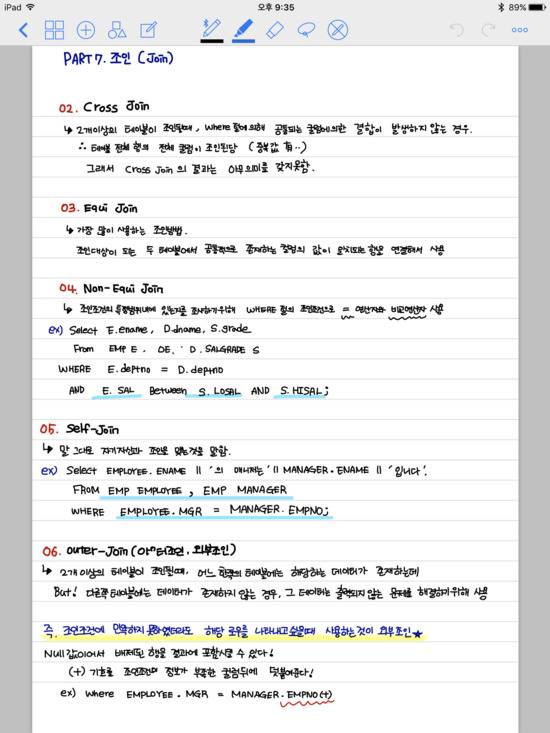 iPad
오후 9:35
89%
PART 7. 조인 (Join)
02. Cross Join
↳ 2개이상의 테이블이 조인될때, Where 절에의해 공통되는 컬럼에의한 결합이 발생하지 않는 경우.
∴ 테이블 전체 행의 전체 컬럼이 조인된당 (중복값 有..)
그래서 Cross Join의 결과는 아무의미를 갖지못함.
03. Equi Join
↳ 가장 많이 사용하는 조인방법.
조인대상이 되는 두 테이블에서 공통적으로 존재하는 컬럼의 값이 일치되는 행을 연결해서 사용
04. Non-Equi Join
↳ 조인조건의 특정범위내에 있는지를 조사하기위해 WHERE 절의 조인조건으로 = 연산자와 비교연산자 사용
ex) Select E.ename, D.dname, S.grade
From EMP E, D, SALGRADE S
WHERE E.deptno = D.deptno
AND E.SAL Between S.LOSAL AND S.HISAL;
05. Self-Join
↳ 말 그대로 자기자신과 조인을 맺는것을 말함.
ex) Select EMPLOYEE.ENAME || '의 매니저는' || MANAGER.ENAME || '입니다'.
FROM EMP EMPLOYEE, EMP MANAGER
WHERE EMPLOYEE.MGR = MANAGER.EMPNO;
06. outer-Join (아우터조인, 외부조인)
↳ 2개 이상의 테이블이 조인될때, 어느 한쪽의 테이블에는 해당하는 데이터가 존재하는데
But! 다른쪽 테이블에는 데이터가 존재하지 않는 경우, 그 데이터는 출력되지 않는 문제를 해결하기위해 사용
즉, 조인조건에 만족하지 못하였더라도 해당 로우를 나타내고 싶을때 사용하는것이 외부조인★
Null값이어서 배제된 행을 결과에 포함시킬 수 있다!
(+) 기호를 조인조건의 정보가 부족한 컬럼뒤에 덧붙여준다!
ex) Where EMPLOYEE.MGR = MANAGER.EMPNO(+)